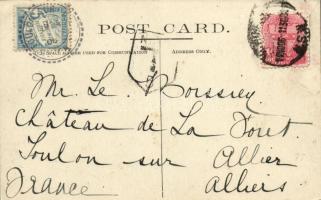 POST CARD.
THIS SPACE MAY BE USED FOR COMMUNICATION ADDRESS ONLY.
Mr. Le Boissiey
Château de La Foret
Toulon sur Allier
France Alliers